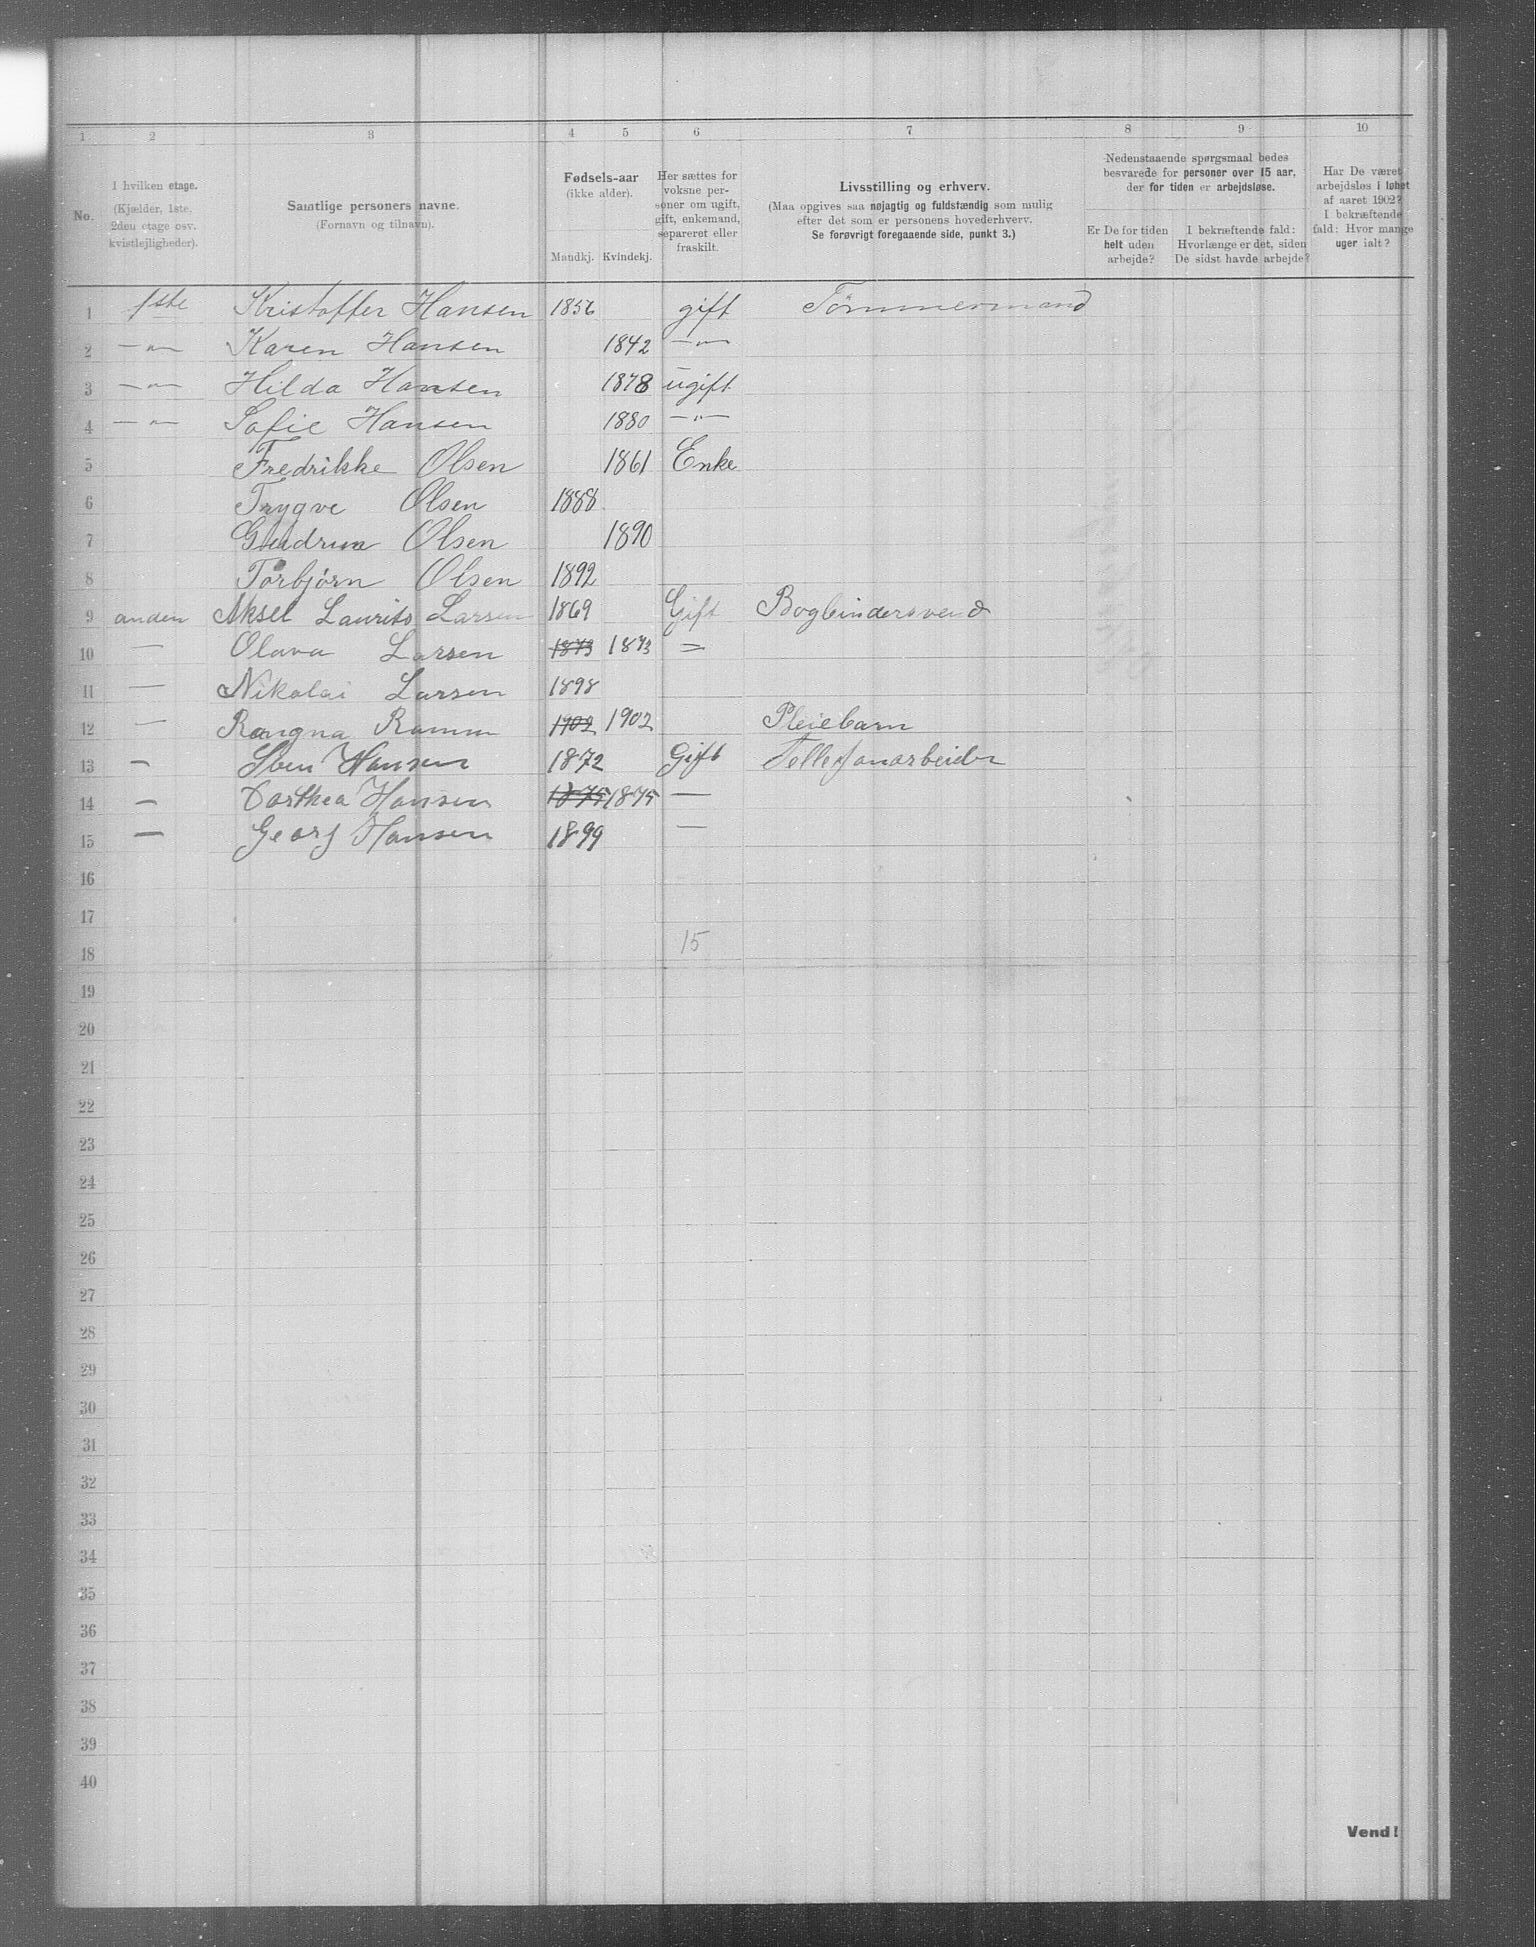 1 2 3 4 5 6 7 8 9 10
No.
I hvilken etage.
(Kjælder, 1ste,
2den etage osv.
kvistlejligheder).
Samtlige personers navne.
(Fornavn og tilnavn).
Fødsels-aar
(ikke alder).
Mandkj. Kvindekj.
Her sættes for
voksne per-
soner om ugift,
gift, enkemand,
separeret eller
fraskilt.
Livsstilling og erhverv.
(Maa opgives saa nøjagtig og fuldstændig som mulig
efter det som er personens hovederhverv.
Se forøvrigt foregaaende side, punkt 3.)
Nedenstaaende spørgsmaal bedes
besvarede for personer over 15 aar,
der for tiden er arbejdsløse.
Er De for tiden
helt uden
arbejde?
I bekræftende fald:
Hvorlænge er det, siden
De sidst havde arbejde?
Har De været
arbejdsløs i løbet
af aaret 1902?
I bekræftende
fald: Hvor mange
uger ialt?
1 1ste Kristoffer Hansen 1856 gift Tømmermand
2 —"— Karen Hansen 1842 —"—
3 —"— Hilda Hansen 1878 ugift
4 —"— Sofie Hansen 1880 —"—
5 Fredrikke Olsen 1861 Enke
6 Trygve Olsen 1888
7 Gudrun Olsen 1890
8 Torbjørn Olsen 1892
9 anden Aksel Laurits Larsen 1869 Gift Bogbindersvend
10 — Olava Larsen 1873 1873 =
11 — Nikolai Larsen 1898
12 — Rangna Ramm 1902 1902 Pleiebarn
13 — Sven Hansen 1872 Gift Tellefonarbeider
14 — Dorthea Hansen 1875 1875 —
15 — Georg Hansen 1899 —
16
17
18 15
19
20
21
22
23
24
25
26
27
28
29
30
31
32
33
34
35
36
37
38
39
40
Vend!